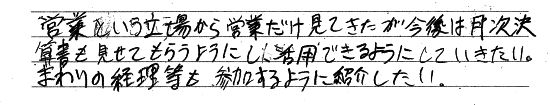 営業という立場から営業だけ見てきたが今後は月次決
算書も見せてもらうようにし、活用できるようにしていきたい。
まわりの経理等も参加するように紹介したい。